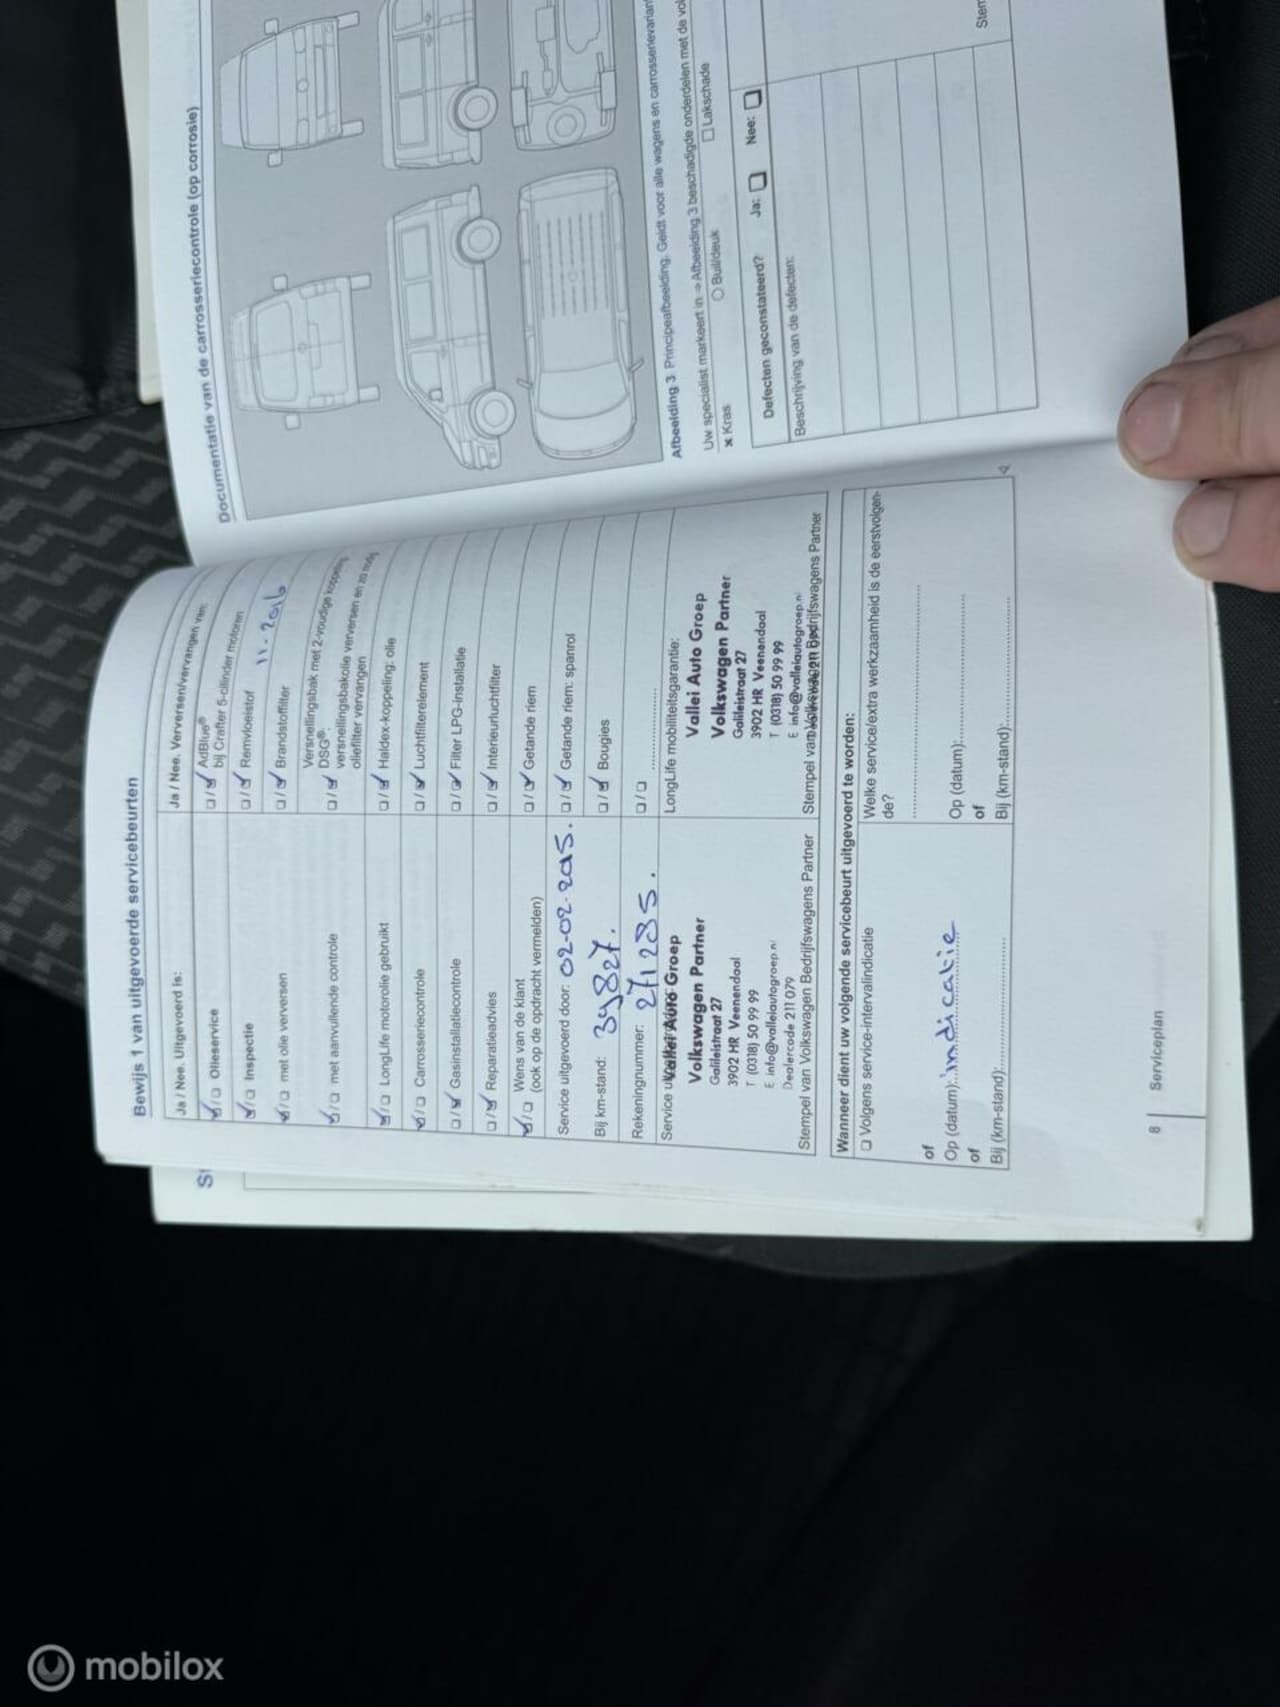 Bewijs 1 van uitgevoerde servicebeurten
Ja / Nee. Uitgevoerd is:
Olieservice
Inspectie
met olie verversen
met aanvullende controle
LongLife motorolie gebruikt
Carrosseriecontrole
Gasinstallatiecontrole
Reparatieadvies
Wens van de klant
(ook op de opdracht vermelden)
Service uitgevoerd door: 02-02-2015.
Bij km-stand: 39827.
Rekeningnummer: 271285.
Vallei Auto Groep
Volkswagen Partner
Galileistraat 27
3902 HR Veenendaal
T (0318) 50 99 99
E info@valleiautogroep.nl
Dealercode 211 079
Stempel van Volkswagen Bedrijfswagens Partner
Ja / Nee. Verversen/vervangen van:
AdBlue®
bij Crafter 5-cilinder motoren
Remvloeistof 11-2016
Brandstoffilter
Versnellingsbak met 2-voudige koppeling
DSG®:
versnellingsbakolie verversen en zo nodig
oliefilter vervangen
Haldex-koppeling: olie
Luchtfilterelement
Filter LPG-installatie
Interieurluchtfilter
Getande riem
Getande riem: spanrol
Bougies
LongLife mobiliteitsgarantie:
Vallei Auto Groep
Volkswagen Partner
Galileistraat 27
3902 HR Veenendaal
T (0318) 50 99 99
E info@valleiautogroep.nl
Stempel van Volkswagen Bedrijfswagens Partner
Wanneer dient uw volgende servicebeurt uitgevoerd te worden:
Volgens service-intervalindicatie
of
Op (datum): indicatie
of
Bij (km-stand):
Welke service/extra werkzaamheid is de eerstvolgen-
de?
Op (datum):
of
Bij (km-stand):
8 Serviceplan
Documentatie van de carrosseriecontrole (op corrosie)
Afbeelding 3 Principeafbeelding: Geldt voor alle wagens en carrosserievarian
Uw specialist markeert in ⇒ Afbeelding 3 beschadigde onderdelen met de vol
× Kras ○ Buil/deuk □ Lakschade
Defecten geconstateerd? Ja: Nee:
Beschrijving van de defecten:
Stem
mobilox